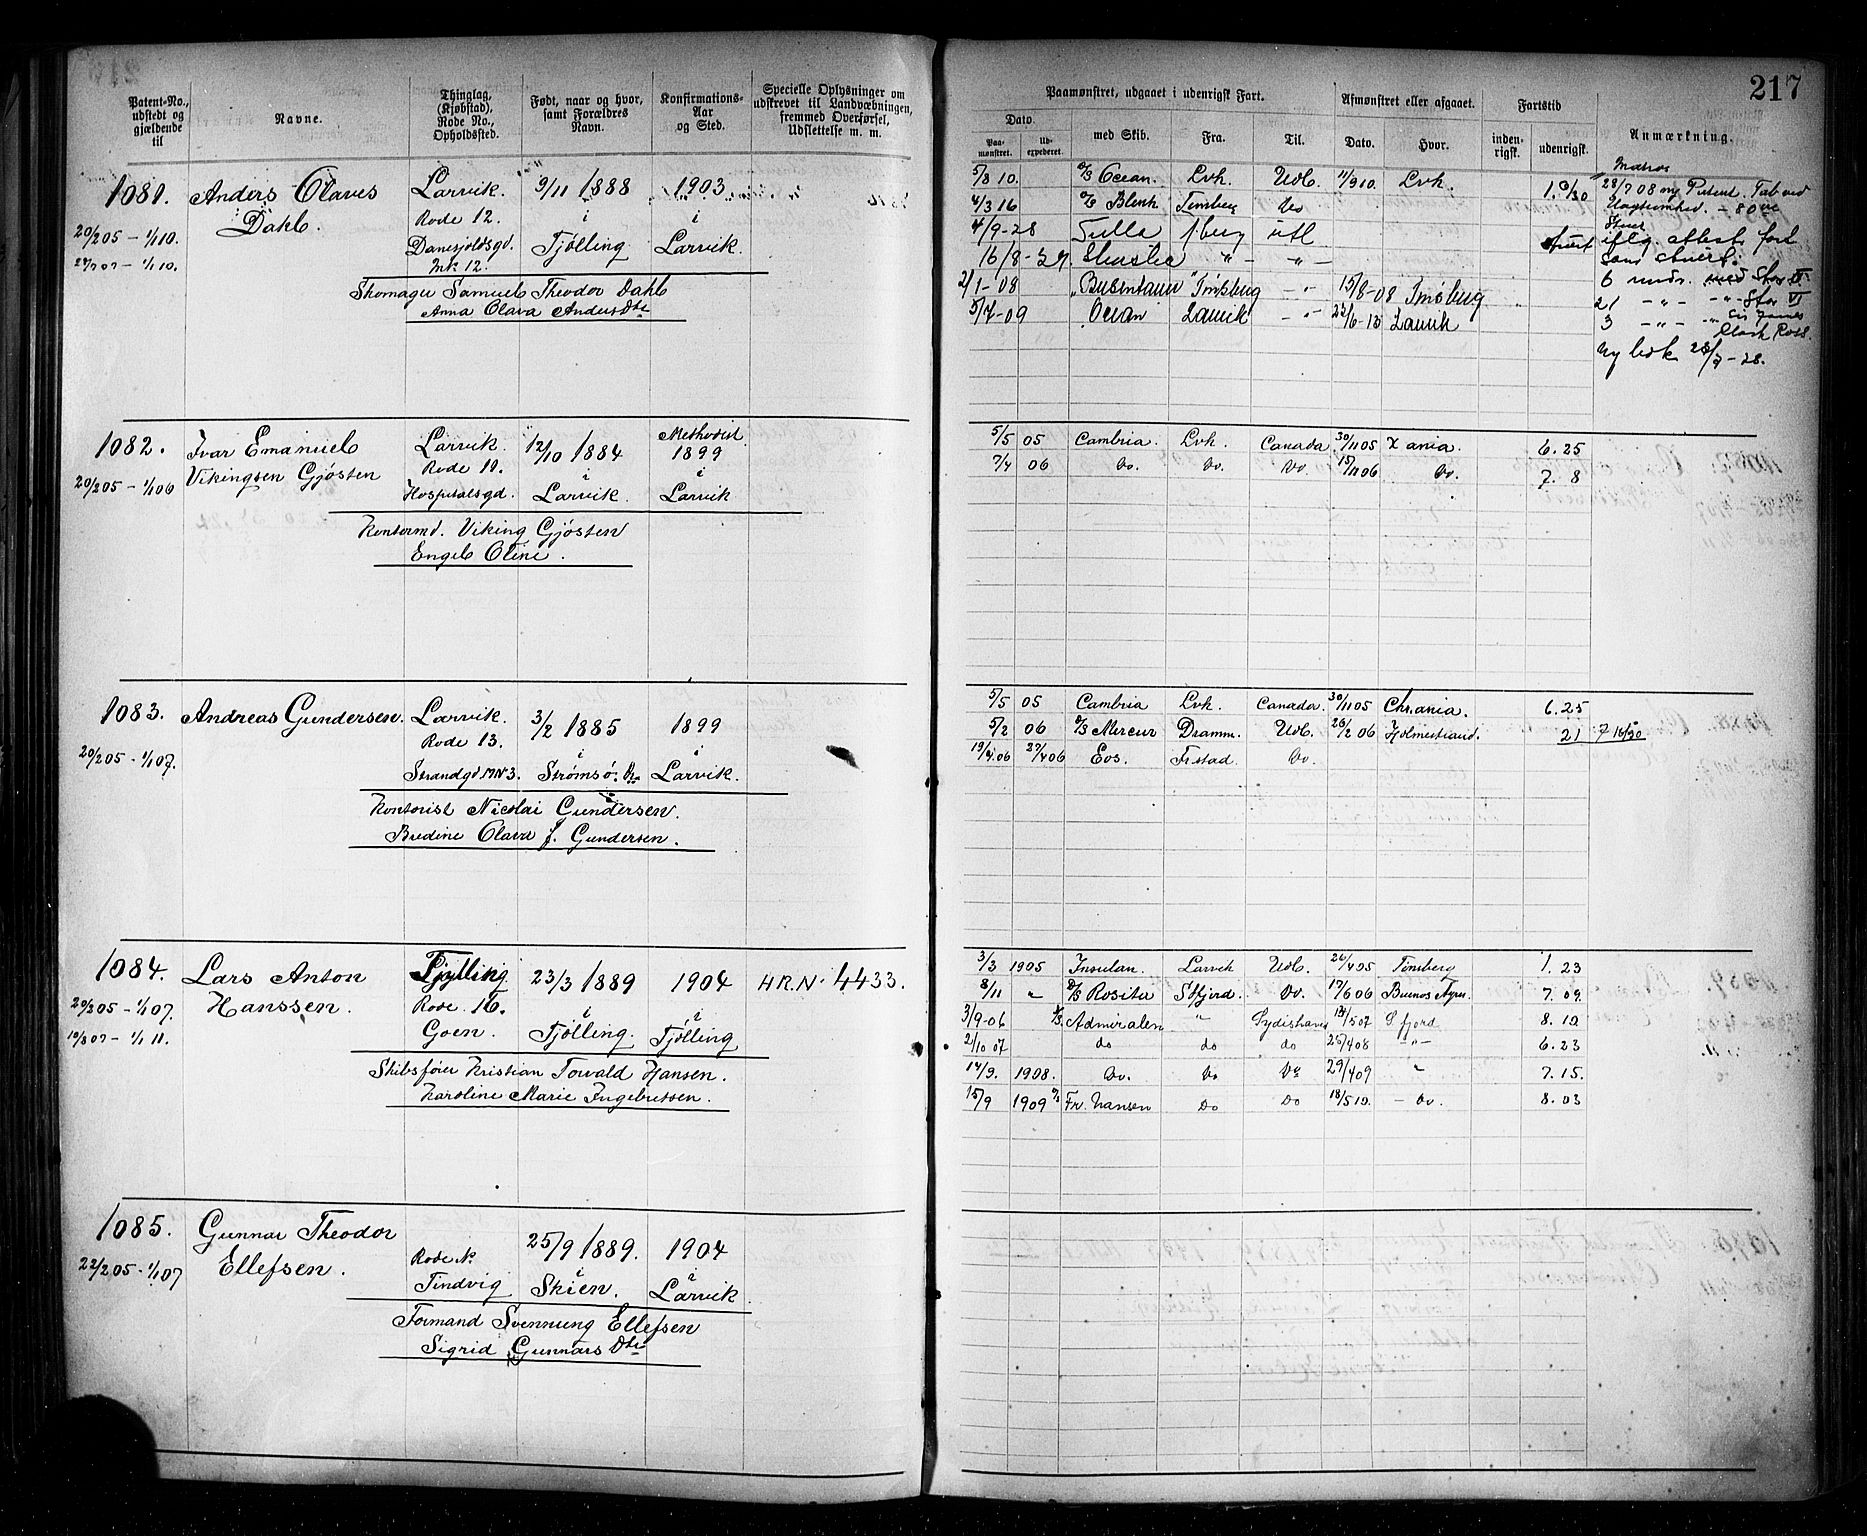 217
Patent-No., udstedt og gjældende til
Navne.
Thinglag, (Kjøbstad), Rode No., Opholdssted.
Født, naar og hvor, samt Forældres Navn.
Konfirmations-Aar og Sted.
Specielle Oplysninger om udskrevet til Landværbningen, fremmed Overførsel, Udslettelse m. m.
Paamønstret, udgaaet i udenrigsk Fart.
Afmønstret eller afgaaet.
Fartstid
Anmærkning.
Dato.
Paa-mønstret.
Ud-expederet.
med Skib.
Fra.
Til.
Dato.
Hvor.
inden-rigsk.
udenrigsk.
1081. Anders Olaves Larvik. 9/11 1888 1903
Dahl. Rode 12. i i
20/2 05 - 1/1 10. Danesjoldsgd. Tjølling Larvik.
Mk 12.
Skomager Samuel Theodor Dahl
Anna Olava Anders Dtr
5/8 10. Ocean. Lvk. Udl. 11/9 10. Lvk.
Matros
28/7 08 ny Patent. Tab ved
4/3 16 Blenk Tønsberg Do
Uagtsomhed. - 80
4/9-28 Sulla Tberg utl
16/8-29. " - " -
2/1-08 "Busentaur" Tønsberg - " - 15/8-08 Tønsberg
5/7-09 Ocean Larvik - " - Larvik
ny bok 28/7-28.
1082. Ivar Emanuel Larvik. 12/10 1884 Methodist 1899
Vikingsen Gjøsten Rode 10. i i
20/2 05 - 1/1 06 Hospitalsgd. Larvik. Larvik
Kontormd. Viking Gjøsten
Engel Oline.
5/5 05 Cambria. Lvk. Canada. 30/11 05 X ania. 6. 25
7/4 06 Do. Do. Do. 15/11 06 Do. 7. 8
1083. Andreas Gundersen. Larvik. 3/2 1885 1899
Rode 13. i i
20/2 05 - 1/1 07. Strandgd MN 3. Strømsø. Larvik.
Kontorist Nicolai Gundersen.
Bredine Olava f. Gundersen.
5/5 05 Cambria Lvk. Canada. 30/11 05 Chr.ania. 6. 25
5/2 06 Mercur Dramm. Udl. 26/2 06 Holmestrand. 21
19/4 06 27/4 06 Eos. Frstad Do.
1084. Lars Anton Tjylling 23/3 1889 1904 H R. N. 4433.
Hanssen. Rode 16. i i
20/2 05 - 1/1 07. Goen. Tjølling. Tjølling
10/3 07 - 1/1 11.
Skibsfører Kristian Torvald Hansen.
Karoline Marie Ingebretsen.
3/3 1905 Insulan. Larvik Udl. 26/4 05 Tønsberg 1. 23
8/11 " Rosita Sfjord. Do. 17/6 06 Buenos Ayres 7. 09.
3/9-06 Admiralen " Sydishavet 5 07 S. fjord 8. 10
2/10 07 do do do 25/4 08 - " - 6. 23
14/9. 1908. Do. Do Do 29/4 09 " 7. 15.
15/9 1909 Fr. Nansen Do Do 18/5 10. - Do. 8. 03
1085. Gunnar Theodor 25/9 1889. 1904
Ellefsen. Rode N. i i
22/2 05 - 1/1 07 Tindvig Skien. Larvik
Formand Svennung Ellefsen
Sigrid Gunnars Dtr